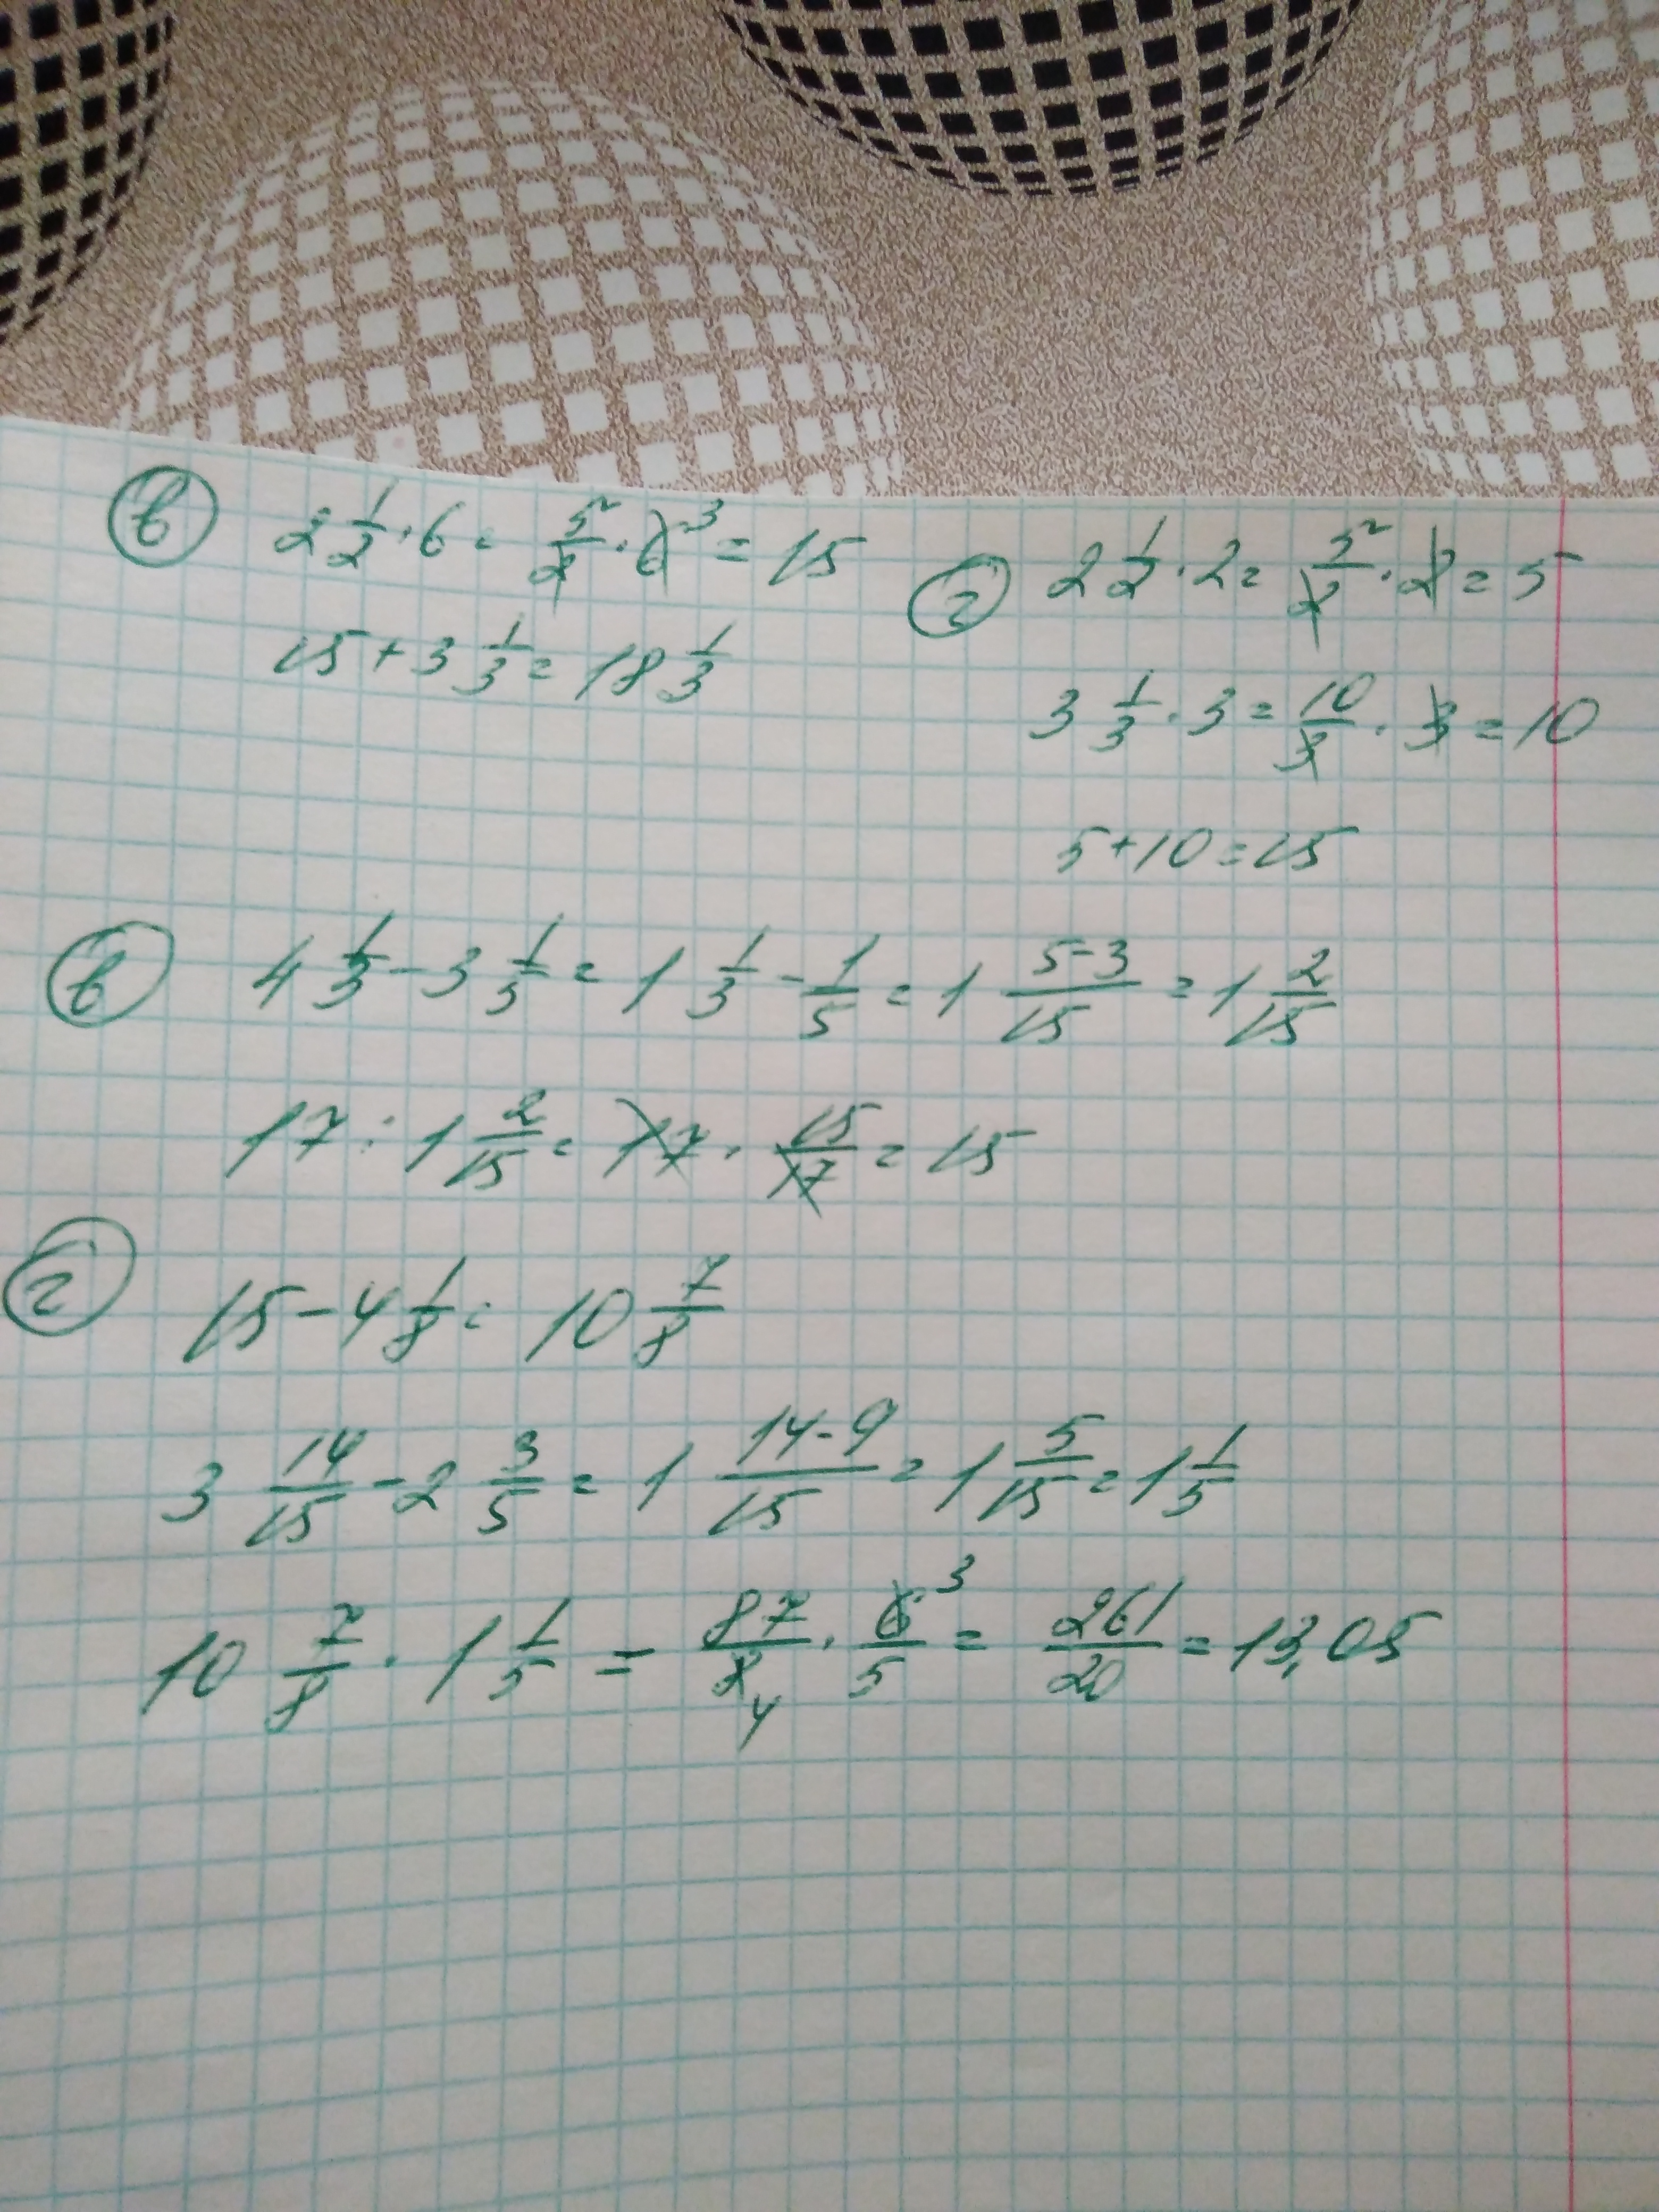 в) 2 1/2 · 6 = 5/2 · 6 3 = 15
15 + 3 1/3 = 18 1/3
г) 2 1/2 · 2 = 5/2 · 2 = 5
3 1/3 · 3 = 10/3 · 3 = 10
5 + 10 = 15
в) 4 1/3 - 3 1/5 = 1 1/3 - 1/5 = 1 5-3/15 = 1 2/15
17 : 1 2/15 = 17 · 15/17 = 15
г) 15 - 4 1/8 = 10 7/8
3 14/15 - 2 3/5 = 1 14-9/15 = 1 5/15 = 1 1/5
10 7/8 · 1 1/5 = 87/8 4 · 6 3/5 = 261/20 = 13,05